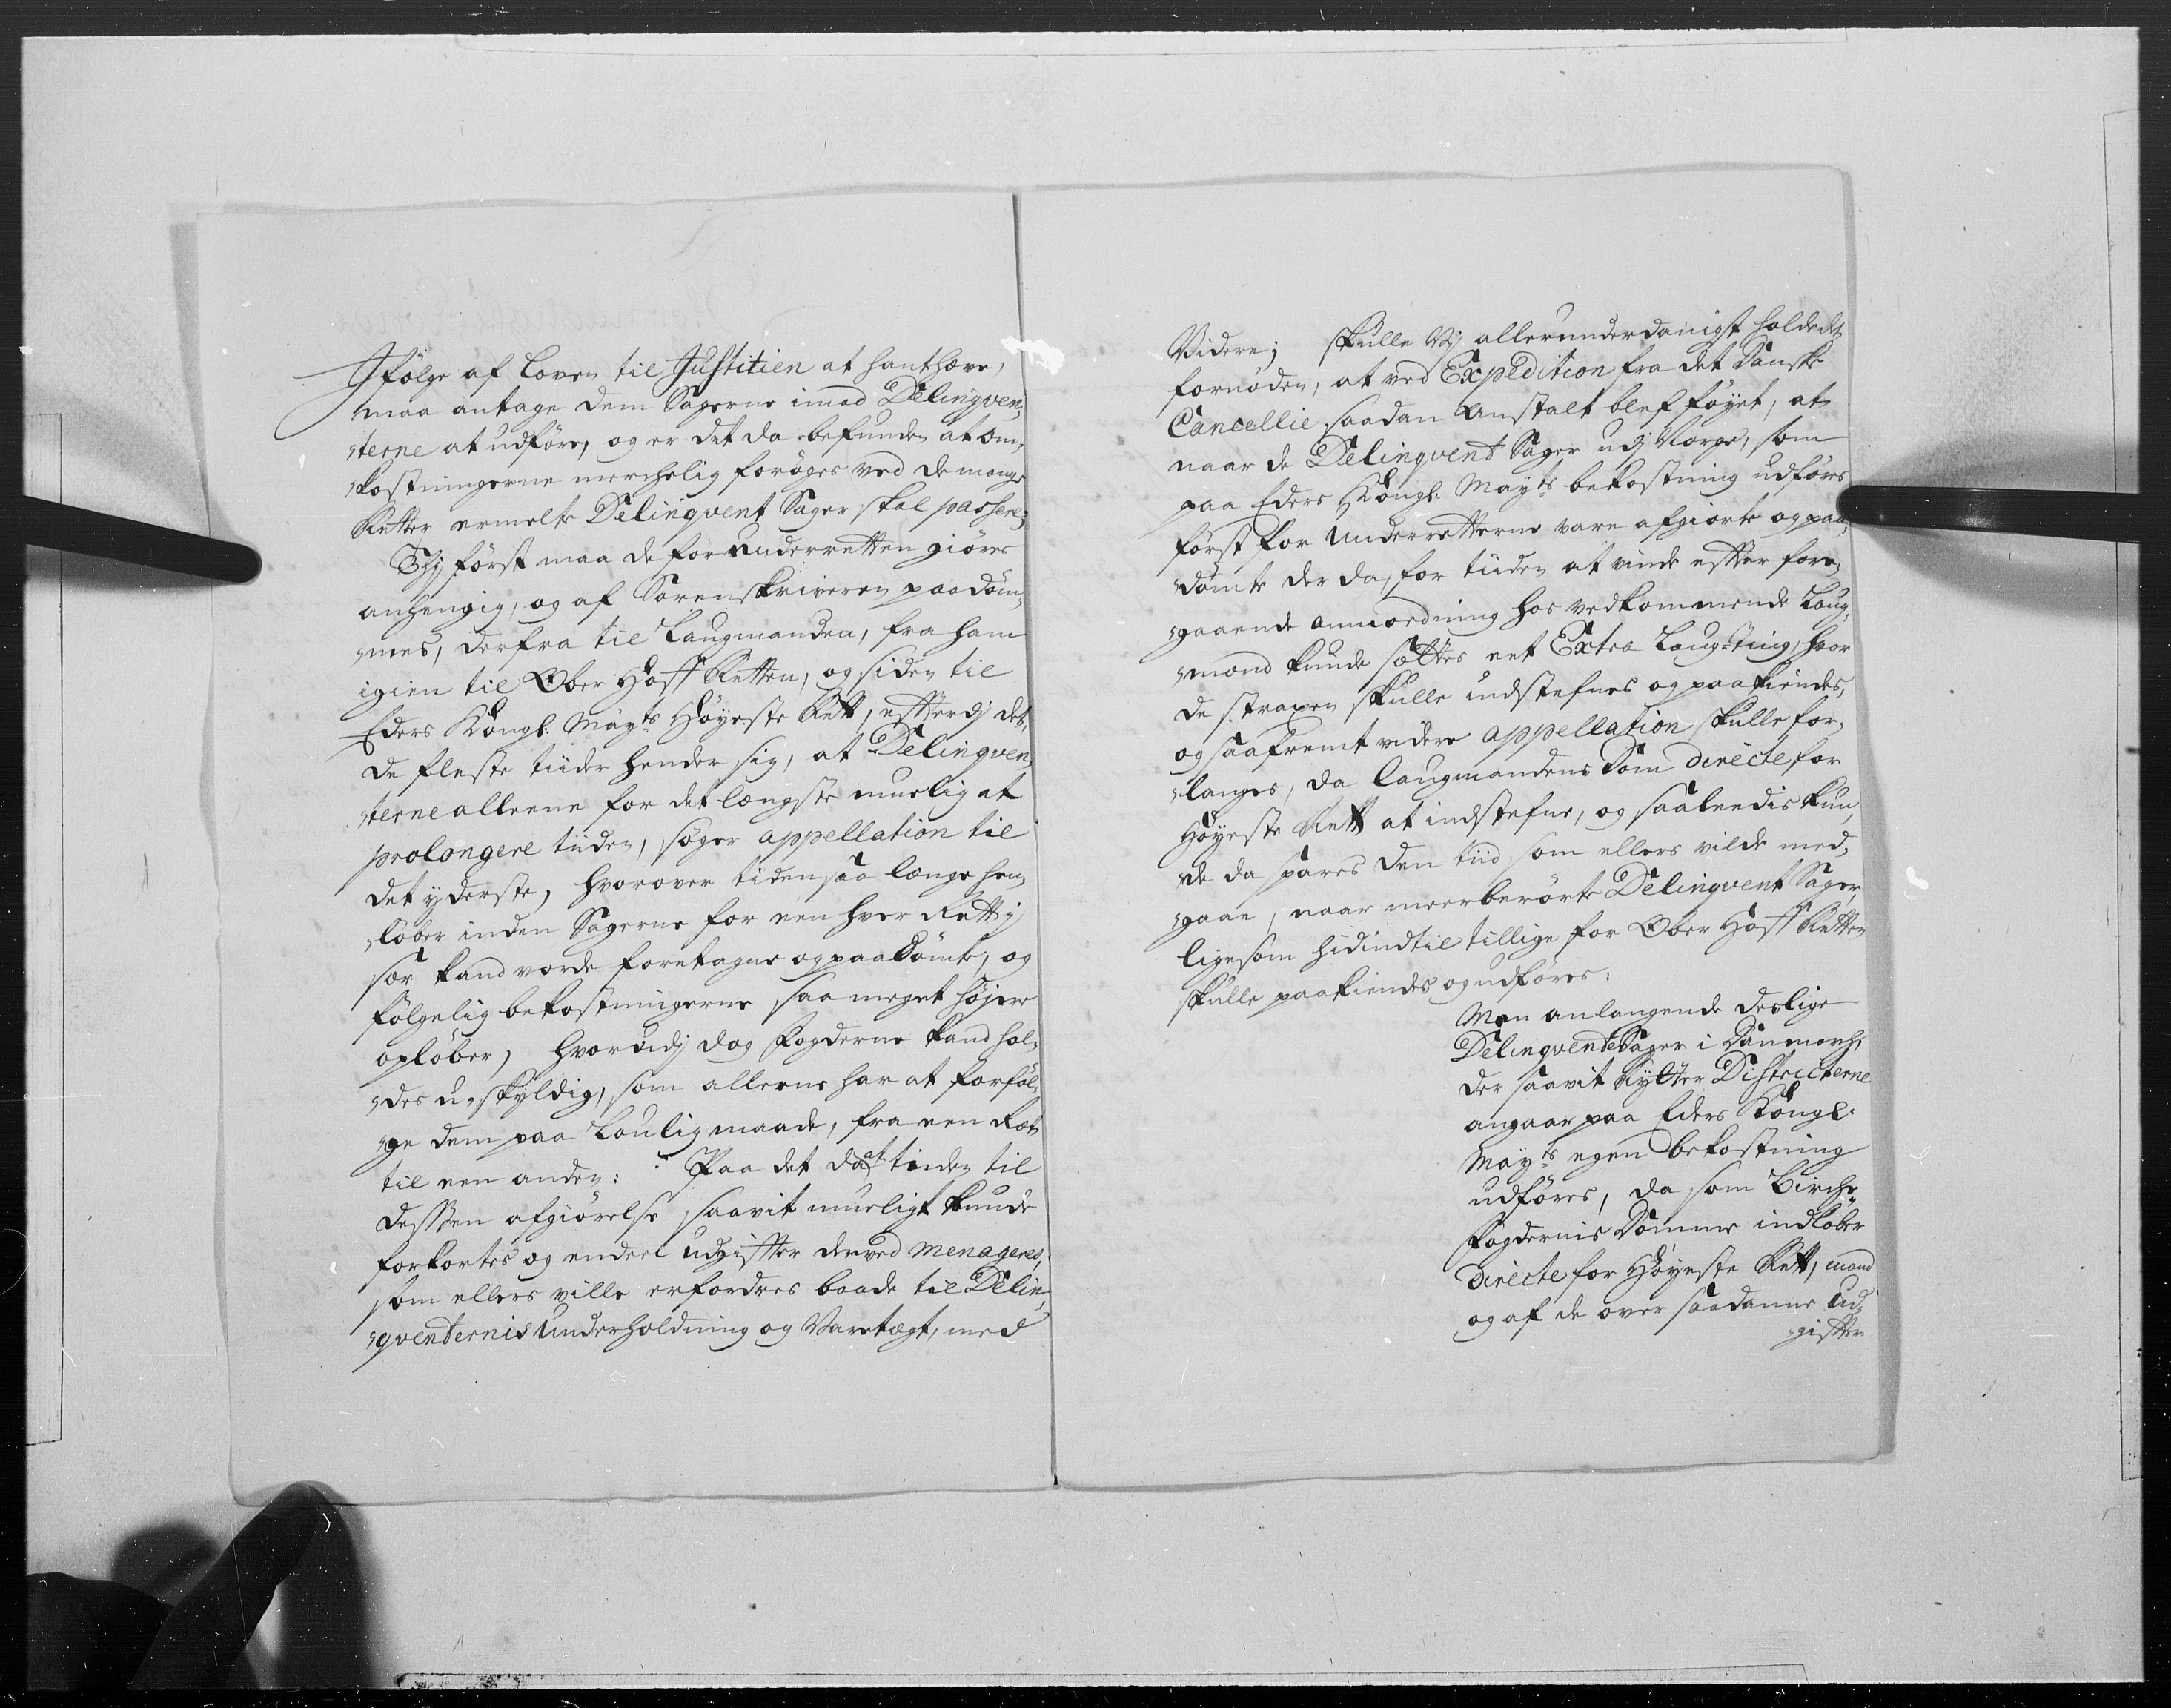 Ifölge af Loven til Justitien at hanthæve,
maa antage dem Sagerne imod Delinqven,
terne at udföre, og er det da befunden at om,
kostningerne merchelig forøges ved de mange
Retter ermelte Delinqvent Sager skal passere;
Thj först maa de for Underretten giöres
anhengig, og af Sorenskriveren paadöm,
mes, derfra til Laugmanden, fra ham
igien til Ober Hoff Retten, og siden til
Eders Kongl: Mayts Höyeste Rett, efterdj det,
de fleste tiider hender sig, at Delinqven,
terne alleene for det længste muelig at
prolongere tiiden, söger appellation til
det yderste, hvorover tiden saa længe hen,
löber inden Sagerne for een hver Rett j
sær kand vorde foretagne og paadömte, og
fölgelig bekostningerne saa meget höjere
oplöber, hvorudj dog Fogderne kand hol,
des u-skyldig, som alleene har at forföl,
ge dem paa Loulig maade, fra een Ræt
til een anden: Paa det da at tiiden til
dessen afgiörelse saavit mueligt kunde
forkortes og endeel udgifter derved menageres,
som ellers ville erfordres baade til Delin,
qventernis Underholdning og Varetægt, med
Videre; skulle Vj allerunderdanigst holde det
fornöden, at ved Expedition fra det Danske
Cancellie saadan Anstalt blef föyet, at
naar de Delinqvent Sager udj Norge, som
paa Eders Kongl: Mayts bekostning udföres
först for Underretterne vare afgiorte og paa,
dömte der da, for tiiden at vinde efter fore,
gaaende anmordning hos vedkommende Laug,
mand kunde sættes eet Extra Laugting, hvor
de straxen skulle indstefnes og paakiendes,
og saafremt videre appellation skulle for,
langes, da Laugmandens Dom directe for
Höyeste Rett at indstefne, og saaleedis kun,
de da spares den tiid som ellers vilde med,
gaae, naar meerberörte Delinqvent Sager,
ligesom hidindtil tillige for Ober Hoff Retten
skulle paakiendes og udföres:
Men anlangende deslige
Delinqvente Sager i Danmarch,
der saavit Rytter Districterne
angaar paa Eders Kongl:
Mayts egen bekostning
udföres, da som Birche
Fogdernis Domme indlöber
directe for Höyeste Rett, mand
og af de over saadanne Ud,
gifter